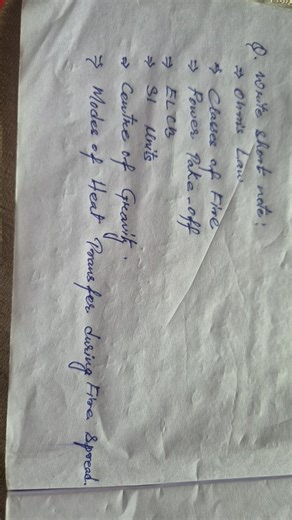 Q. Write Short note:
⇒ Ohm's Law
⇒ Classes of Fire
⇒ Power Take-off
⇒ ELCB
⇒ SI Units
⇒ Centre of Gravity.
⇒ Modes of Heat Transfer during Fire Spread.